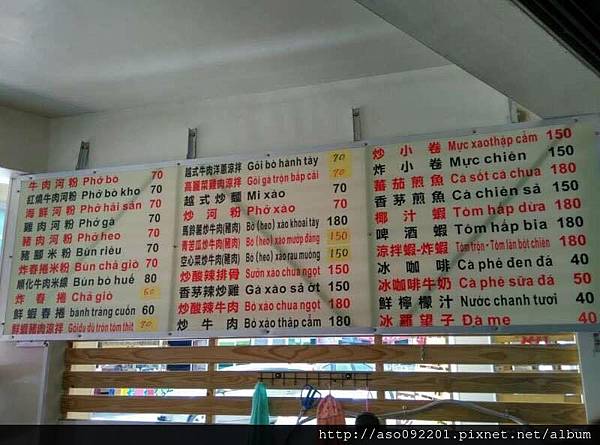 牛肉河粉 Phở bò 70
紅燒牛肉河粉 Phở bò kho 70
海鮮河粉 Phở hải sản 70
雞肉河粉 Phở gà 70
豬肉河粉 Phở heo 70
豬腳米粉 Bún riêu 70
炸春捲米粉 Bún chả giò 70
順化牛肉米線 Bún bò huế 80
炸春捲 Chả giò 60
鮮蝦春捲 bánh tráng cuốn 60
鮮蝦豬肉涼拌 Gỏi đu đủ tôm thịt 70
越式牛肉洋蔥涼拌 Gỏi bò hành tây 70
高麗菜雞肉涼拌 Gỏi gà trộn bắp cải 70
越式炒麵 Mì xào 70
炒河粉 Phở xào 70
馬鈴薯炒牛肉(豬肉) Bò (heo) xào khoai tây 180
青苦瓜炒牛肉(豬肉) Bò (heo) xào mướp đắng 150
空心菜炒牛肉(豬肉) Bò (heo) xào rau muống 150
炒酸辣排骨 Sườn xào chua ngọt 150
香茅辣炒雞 Gà xào sả ớt 150
炒酸辣牛肉 Bò xào chua ngọt 180
炒牛肉 Bò xào thập cẩm 180
炒小卷 Mực xào thập cẩm 150
炸小卷 Mực chiên 150
蕃茄煎魚 Cá sốt cà chua 180
香茅煎魚 Cá chiên sả 150
椰汁蝦 Tôm hấp dừa 180
啤酒蝦 Tôm hấp bia 180
涼拌蝦-炸蝦 Tôm trộn - Tôm lăn bột chiên 180
冰咖啡 Cà phê đen đá 40
冰咖啡牛奶 Cà phê sữa đá 50
鮮檸檬汁 Nước chanh tươi 40
冰羅望子 Đá me 40
http://aso092201.pixnet.net/album